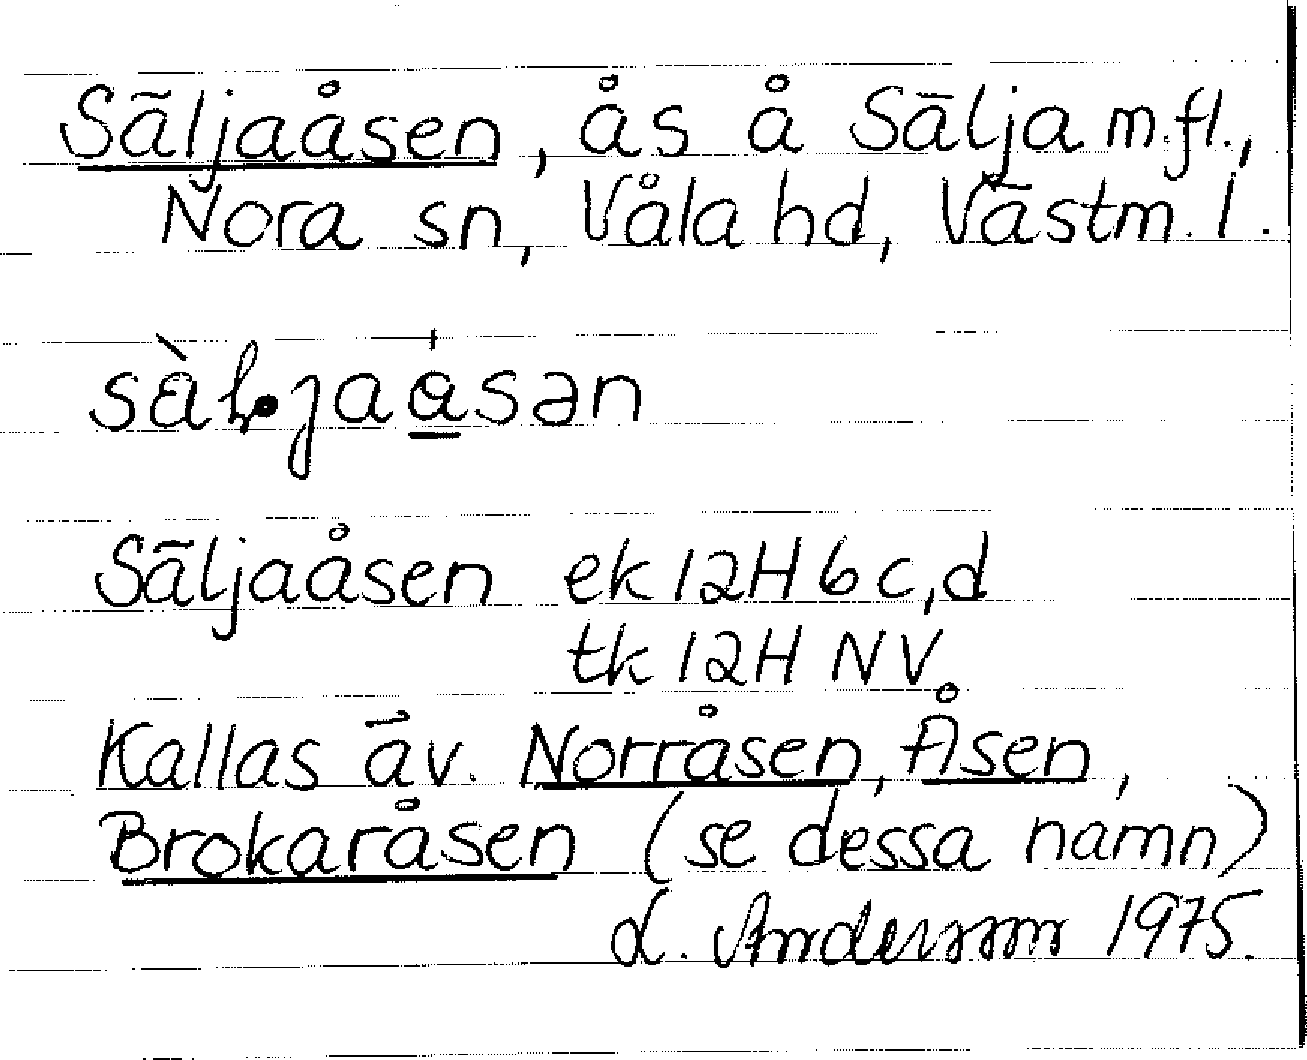 Säljaåsen, ås å Sälja m.fl.,
Nora sn, Våla hd, Västm. l.
Säljaåsen ek 12H 6c,d
tk 12H NV.
Kallas äv. Norråsen, Åsen,
Brokaråsen (se dessa namn)
L. Andersson 1975.